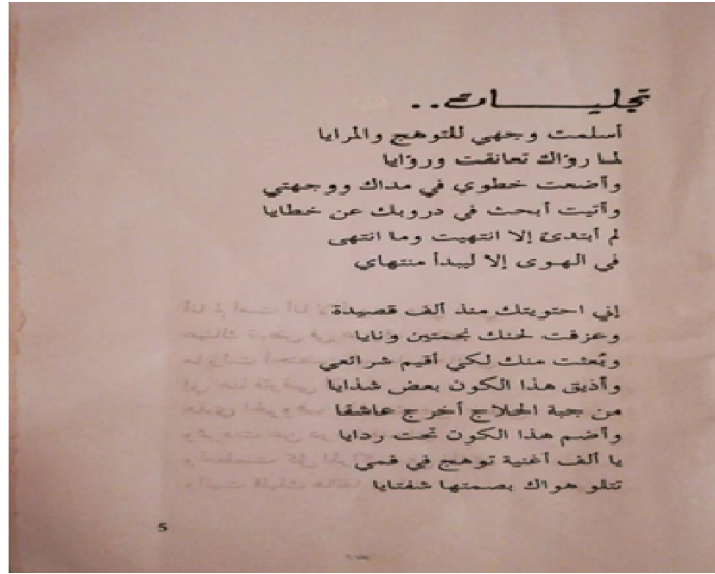 تجليــات..
أسلمت وجهي للتوهج والمرايا
لما رؤاك تعانقت ورؤايا
وأضعت خطوي في مداك ووجهتي
وأتيت أبحث في دروبك عن خطايا
لم أبتدئ إلا انتهيت وما انتهى
في الهوى إلا ليبدأ منتهاي
إني احتويتك منذ ألف قصيدة
وعزفت لحنك نجمتين ونايا
وبُعثت منك لكي أقيم شرائعي
وأذيق هذا الكون بعض شذايا
من جبة الحلاج أخرج عاشقا
وأضم هذا الكون تحت ردايا
يا ألف أغنية توهج في فمي
تتلو هواك بصمتها شفتايا
5